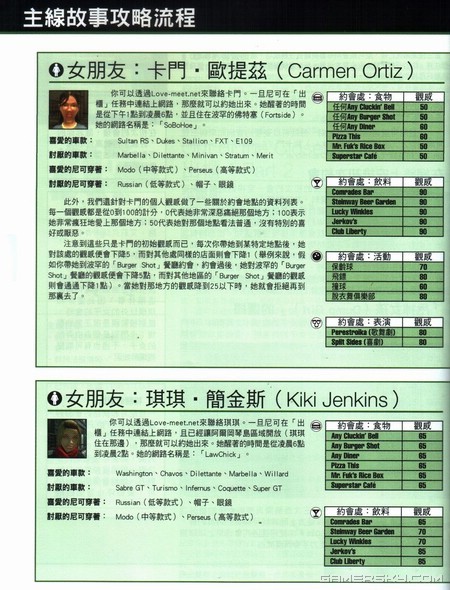 主線故事攻略流程
女朋友：卡門・歐提茲（Carmen Ortiz）
你可以透過Love-meet.net來聯絡卡門。一旦尼可在「出
櫃」任務中連結上網路，那麼就可以約她出來。她醒著的時間
是從下午1點到凌晨6點，並且住在波罕的佛特塞（Fortside）。
她的網路名稱是：「SoBoHoe」。
喜愛的車款： Sultan RS、Dukes、Stallion、FXT、E109
討厭的車款： Marbella、Dilettante、Minivan、Stratum、Merit
喜愛的尼可穿著： Modo（中等款式）、Perseus（高等款式）
討厭的尼可穿著： Russian（低等款式）、帽子、眼鏡
此外，我們還針對卡門的個人觀感做了一些關於約會地點的資料列表。
每一個觀感都是從0到100的計分，0代表她非常深惡痛絕那個地方；100表示
她非常瘋狂地愛上那個地方；50代表她對那個地點看法普通，沒有特別的喜
好或厭惡。
注意到這些只是卡門的初始觀感而已，每次你帶她到某特定地點後，她
對該處的觀感便會下降5，而對其他處同樣的店面則會下降1（舉例來說，假
如你帶她到波罕的「Burger Shot」餐廳約會，約會過後，她對波罕的「Burger
Shot」餐廳的觀感便會下降5點，而對其他地區的「Burger Shot」餐廳的觀感
則會通通下降1點）。當她對那地方的觀感降到25以下時，她就會拒絕再到
那裏去了。
約會處：食物 觀感
任何Any Cluckin' Bell 50
任何Any Burger Shot 50
任何Any Diner 60
Pizza This 60
Mr. Fuk's Rice Box 50
Superstar Café 50
約會處：飲料 觀感
Comrades Bar 90
Steinway Beer Garden 90
Lucky Winkles 90
Jerkov's 80
Club Liberty 90
約會處：活動 觀感
保齡球 70
飛鏢 80
撞球 60
脫衣舞俱樂部 80
約會處：表演 觀感
Perestroika (歌舞劇) 80
Split Sides (喜劇) 80
女朋友：琪琪・簡金斯（Kiki Jenkins）
你可以透過Love-meet.net來聯絡琪琪。一旦尼可在「出
櫃」任務中連結上網路，且已經讓阿爾岡琴島區域開放（琪琪
住在那邊），那麼就可以約她出來。她醒著的時間是從凌晨6點
到凌晨2點。她的網路名稱是：「LawChick」。
喜愛的車款： Washington、Chavos、Dilettante、Marbella、Willard
討厭的車款： Sabre GT、Turismo、Infernus、Coquette、Super GT
喜愛的尼可穿著： Russian（低等款式）、帽子、眼鏡
討厭的尼可穿著： Modo（中等款式）、Perseus（高等款式）
約會處：食物 觀感
Any Cluckin' Bell 65
Any Burger Shot 65
Any Diner 65
Pizza This 65
Mr. Fuk's Rice Box 65
Superstar Café 65
約會處：飲料 觀感
Comrades Bar 65
Steinway Beer Garden 70
Lucky Winkles 70
Jerkov's 85
Club Liberty 85
GAMERSKY.COM